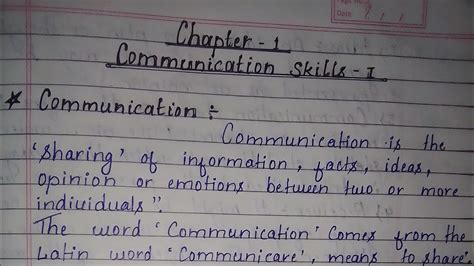 Date
Chapter - 1
Communication Skills - I
* Communication ÷
Communication is the
'sharing' of information, facts, ideas,
opinion or emotions between two or more
individuals".
The word 'Communication' Comes from the
Latin word 'Communicare', means to share